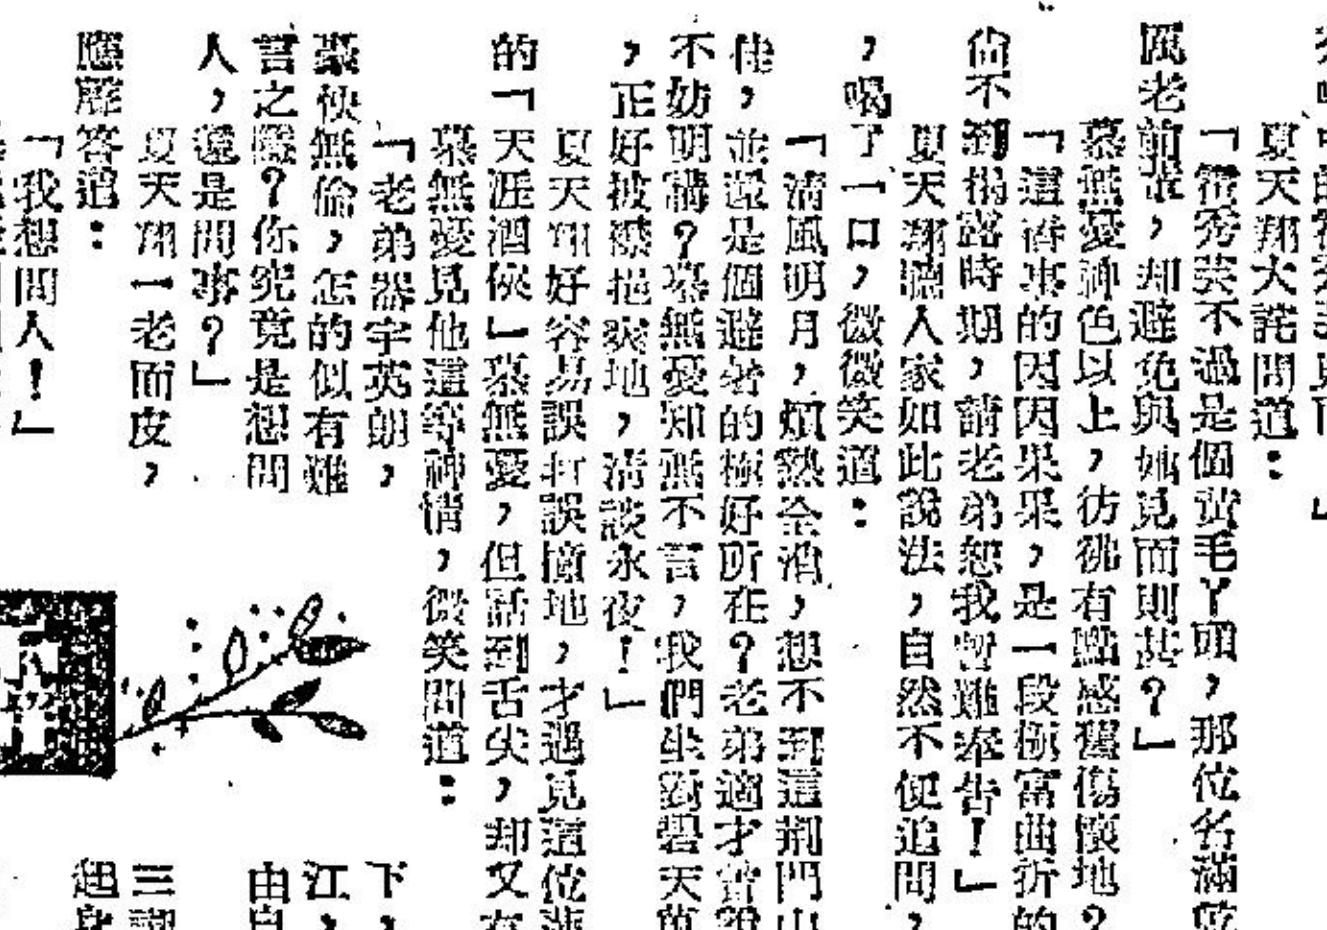 夏天翔大詫問道：
「霍秀芸不過是個黃毛丫頭，那位名滿
風老前輩，却避免與她見面則甚？」
慕無憂神色以上，彷彿有點感舊傷懷地？
「這濟事的因因果果，是一段極富曲折的
尚不到揭露時期，請老弟恕我暫難奉告！」
夏天翔聽人家如此說法，自然不便追問，
，喝了一口，微微笑道：
「清風明月，煩熱全消，想不到這荆門山
佳，並還是個避暑的極好所在？老弟適才曾說
不妨明講？慕無憂知無不言，我們坐對碧天
，正好披襟挹爽地，清談永夜！」
夏天翔好容易誤打誤撞地，才遇見這位
的「天涯酒俠」慕無憂，但話到舌尖，却又有
慕無憂見他這等神情，微笑問道：
「老弟器宇英朗，
豪俠無倫，怎的似有難
言之隱？你究竟是想問
人，還是問事？」
夏天翔一老面皮，
應聲答道：
「我想問人！」
下，
江，
由自
三
起身